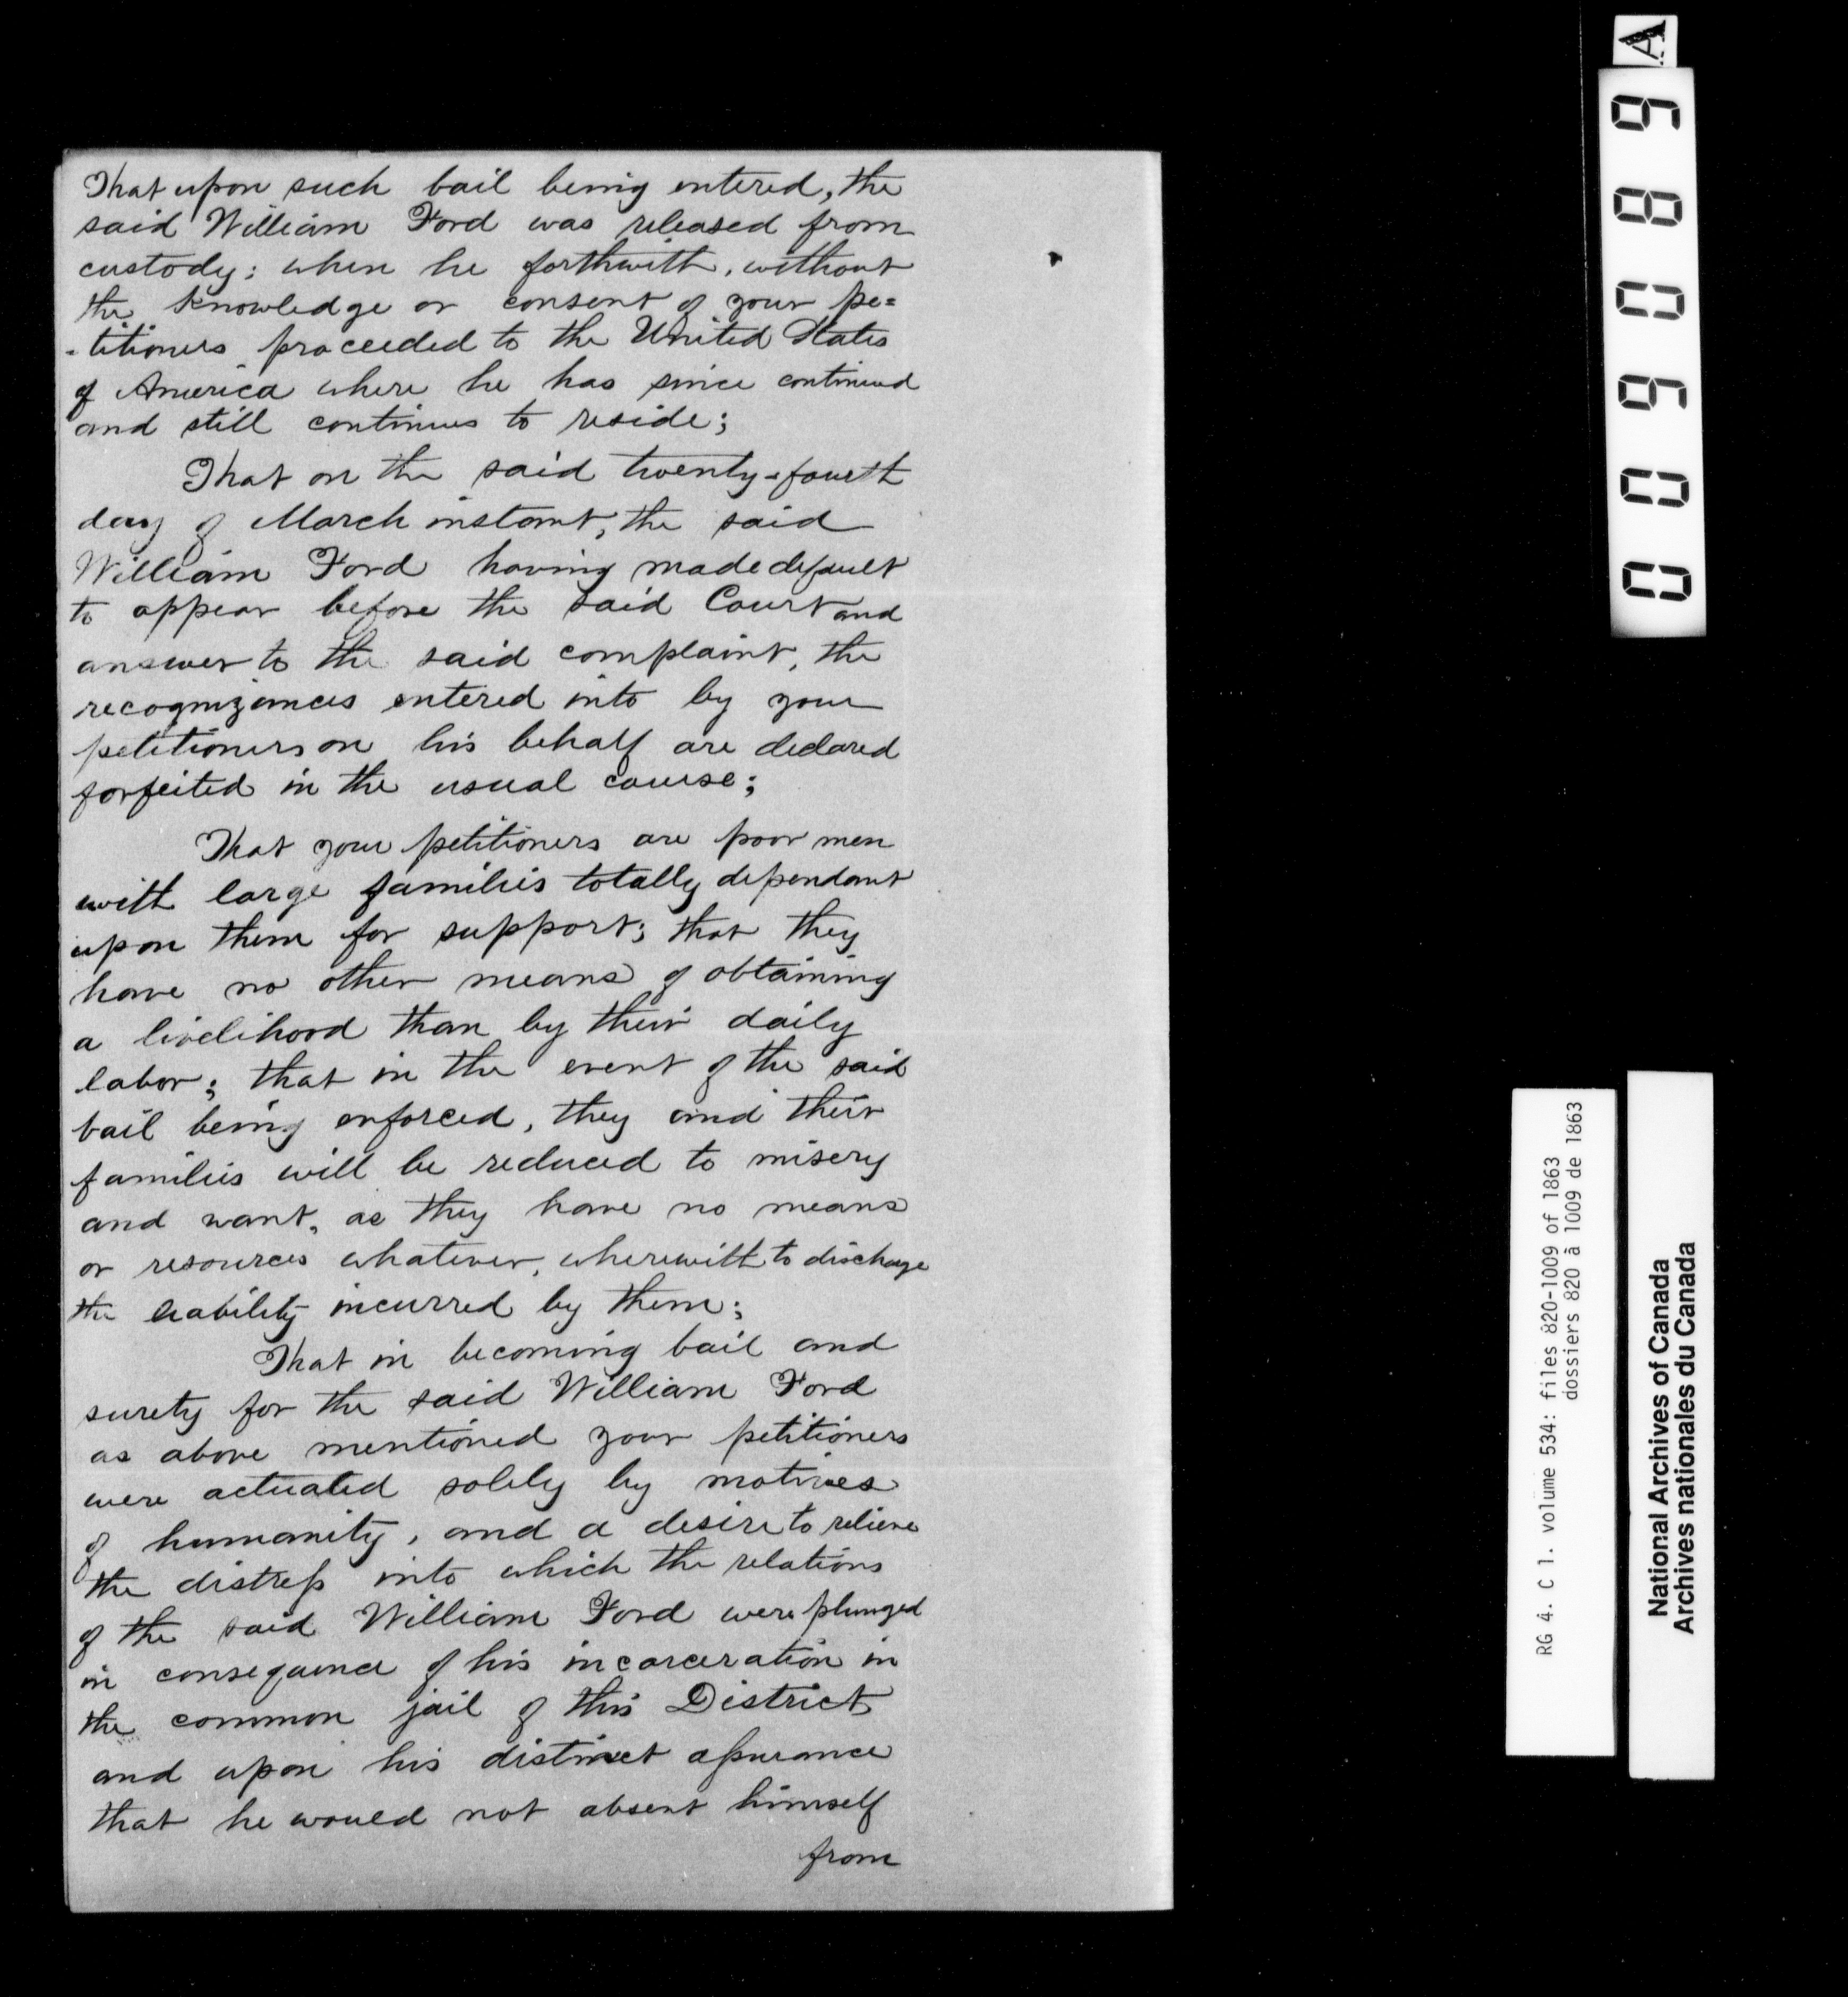 That upon such bail being entered, the
said William Ford was released from
custody; when he forthwith, without
the knowledge or consent of your pe=
=titioners proceeded to the United States
of America where he has since continued
and still continues to reside;
That on the said twenty=fourth
day of March instant, the said
William Ford having made default
to appear before the said Court and
answer to the said complaint, the
recognizances entered into by your
petitioners on his behalf are declared
forfeited in the usual course;
That your petitioners are poor men
with large families totally dependant
upon them for support; that they
have no other means of obtaining
a livelihood than by their daily
labor; that in the event of the said
bail being enforced, they and their
families will be reduced to misery
and want, as they have no means
or resources whatever, wherewith to discharge
the liability incurred by them;
That in becoming bail and
surety for the said William Ford
as above mentioned your petitioners
were actuated solely by motives
of humanity, and a desire to relieve
the distress into which the relations
of the said William Ford were plunged
in consequence of his incarceration in
the common jail of this District
and upon his distinct assurance
that he would not absent himself
from
A
000908 9
RG 4. C 1. volume 534: files 820-1009 of 1863
dossiers 820 à 1009 de 1863
National Archives of Canada
Archives nationales du Canada